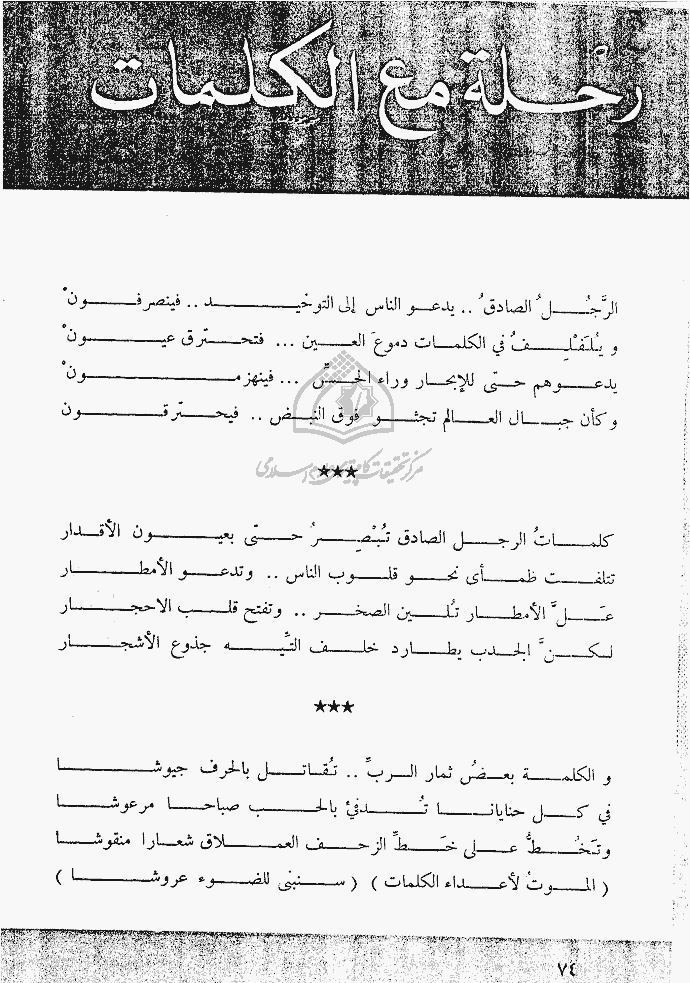 رحلة مع الكلمات
الرَّجُل الصادق .. يدعو الناس إلى التوحيد .. فينصرفونْ
و يُلَفْلِفُ في الكلمات دموعَ العين ... فتحترق عيونْ
يدعوهم حتّى للإبحار وراء الحسِّ ... فينهزمونْ
و كأن جبال العالم تجثو فوق النبض .. فيحترقون
***
كلماتُ الرجل الصادق تُبْصِرُ حتّى بعيون الأقدار
تتلفت ظمأى نحو قلوب الناس .. وتدعو الأمطار
علَّ الأمطار تُلين الصخر .. وتفتح قلب الاحجار
لكنَّ الجدب يطارد خلف التِّيه جذوع الأشجار
***
و الكلمة بعضُ ثمار الربِّ .. تُقاتل بالحرف جيوشا
في كل حنايانا تُدفئ بالحب صباحا مرعوشا
وتَخُطُّ على خَطِّ الزحف العملاق شعارا منقوشا
( الموتُ لأعداء الكلمات ) ( سنبني للضوء عروشا )
مركز تحقیقات کامپیوتری علوم اسلامی
٧٤